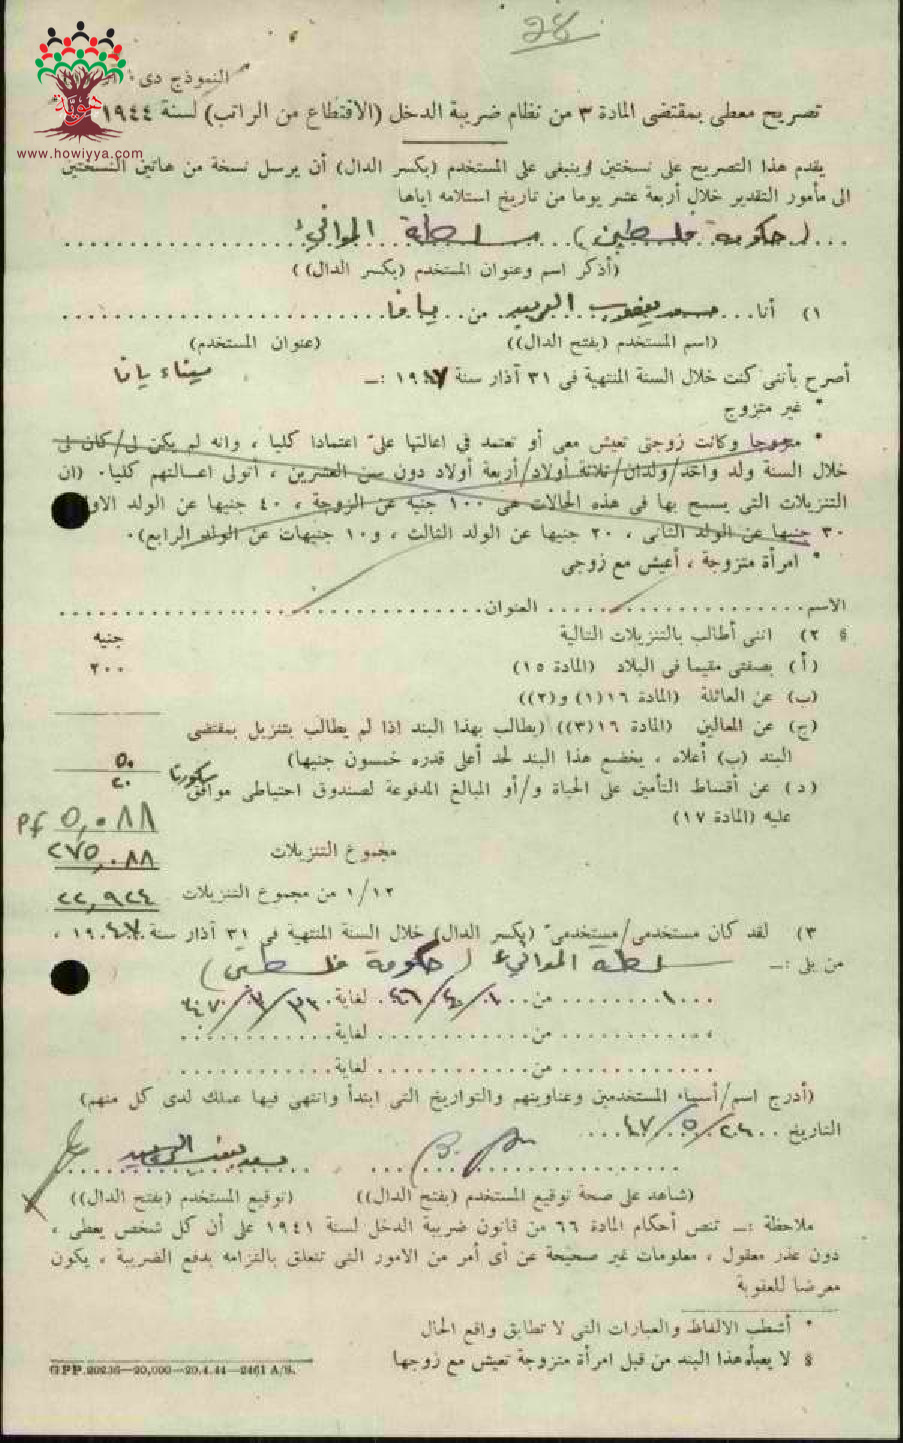 ٢٤
هوية
www.howiyya.com
النموذج دى
تصريح معطى بمقتضى المادة ٣ من نظام ضريبة الدخل (الاقتطاع من الراتب) لسنة ١٩٤٤
يقدم هذا التصريح على نسختين وينبغى على المستخدم (بكسر الدال) أن يرسل نسخة من هاتين النسختين
الى مأمور التقدير خلال أربعة عشر يوما من تاريخ استلامه اياها
(حكومة فلسطين) سلطة الموانئ
(أذكر اسم وعنوان المستخدم (بكسر الدال))
١) أنا سعد يعقوب السعيد من يافا
(اسم المستخدم (بفتح الدال)) (عنوان المستخدم)
أصرح بأننى كنت خلال السنة المنتهية فى ٣١ آذار سنة ١٩٤٧ :ـ ميناء يافا
* غير متزوج
* متزوجا وكانت زوجتى تعيش معى أو تعتمد فى اعالتها علىّ اعتمادا كليا ، وانه لم يكن لى/كان لى
خلال السنة ولد واحد/ولدان/ثلاثة أولاد/أربعة أولاد دون سن العشرين ، أتولى اعالتهم كليا. (ان
التنزيلات التى يسمح بها فى هذه الحالات هى ١٠٠ جنيه عن الزوجة ، ٤٠ جنيها عن الولد الاول
٣٠ جنيها عن الولد الثانى ، ٢٠ جنيها عن الولد الثالث ، و١٠ جنيهات عن الولد الرابع).
* امرأة متزوجة ، أعيش مع زوجى
الاسم العنوان
§ ٢) اننى أطالب بالتنزيلات التالية جنيه
(أ) بصفتى مقيما فى البلاد (المادة ١٥) ٢٠٠
(ب) عن العائلة (المادة ١٦(١) و(٢))
(ج) عن المعالين (المادة ١٦(٣)) (يطالب بهذا البند اذا لم يطالب بتنزيل بمقتضى
البند (ب) أعلاه ، يخضع هذا البند لحد أعلى قدره خمسون جنيها) ٥٠
(د) عن أقساط التأمين على الحياة و/أو المبالغ المدفوعة لصندوق احتياطى موافق سكورتا ٢٠
عليه (المادة ١٧) Pf ٥,٠٨٨
مجموع التنزيلات ٢٧٥,٠٨٨
١/١٢ من مجموع التنزيلات ٢٢,٩٢٤
٣) لقد كان مستخدمى/مستخدمىّ (بكسر الدال) خلال السنة المنتهية فى ٣١ آذار سنة ١٩٤٧ ،
من يلى :ـ سلطة الموانئ (حكومة فلسطين)
من ١/٤/٤٦ لغاية ٣١/٣/٤٧
من لغاية
من لغاية
(أدرج اسم/أسماء المستخدمين وعناوينهم والتواريخ التى ابتدأ وانتهى فيها عملك لدى كل منهم)
التاريخ ٢٠/٥/٤٧
سعد يعقوب السعيد
(شاهد على صحة توقيع المستخدم (بفتح الدال)) (توقيع المستخدم (بفتح الدال))
ملاحظة :ـ تنص أحكام المادة ٦٦ من قانون ضريبة الدخل لسنة ١٩٤١ على أن كل شخص يعطى ،
دون عذر معقول ، معلومات غير صحيحة عن أى أمر من الامور التى تتعلق بالتزامه بدفع الضريبة ، يكون
معرضا للعقوبة
* أشطب الالفاظ والعبارات التى لا تطابق واقع الحال
§ لا يعبأ هذا البند من قبل امرأة متزوجة تعيش مع زوجها
GPP.20236—20,000—20.4.44—2461 A/S.